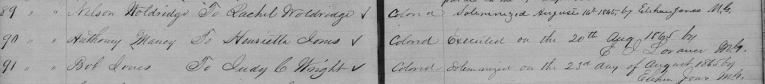 89 " " Nelson Woldridge To Rachel Woldridge ✓ Colord Solemenized August 16th 1865, by Elihu Jones M.G.
90 " " Anthony Maney To Henrietta Jones ✓ Colord Executed on the 20th Aug 1865 by
M.G.
91 " " Bob Jones To Judy C Wright ✓ Colord Solemnized on the 23d day of August 1865 by
Elihu Jones M.G.